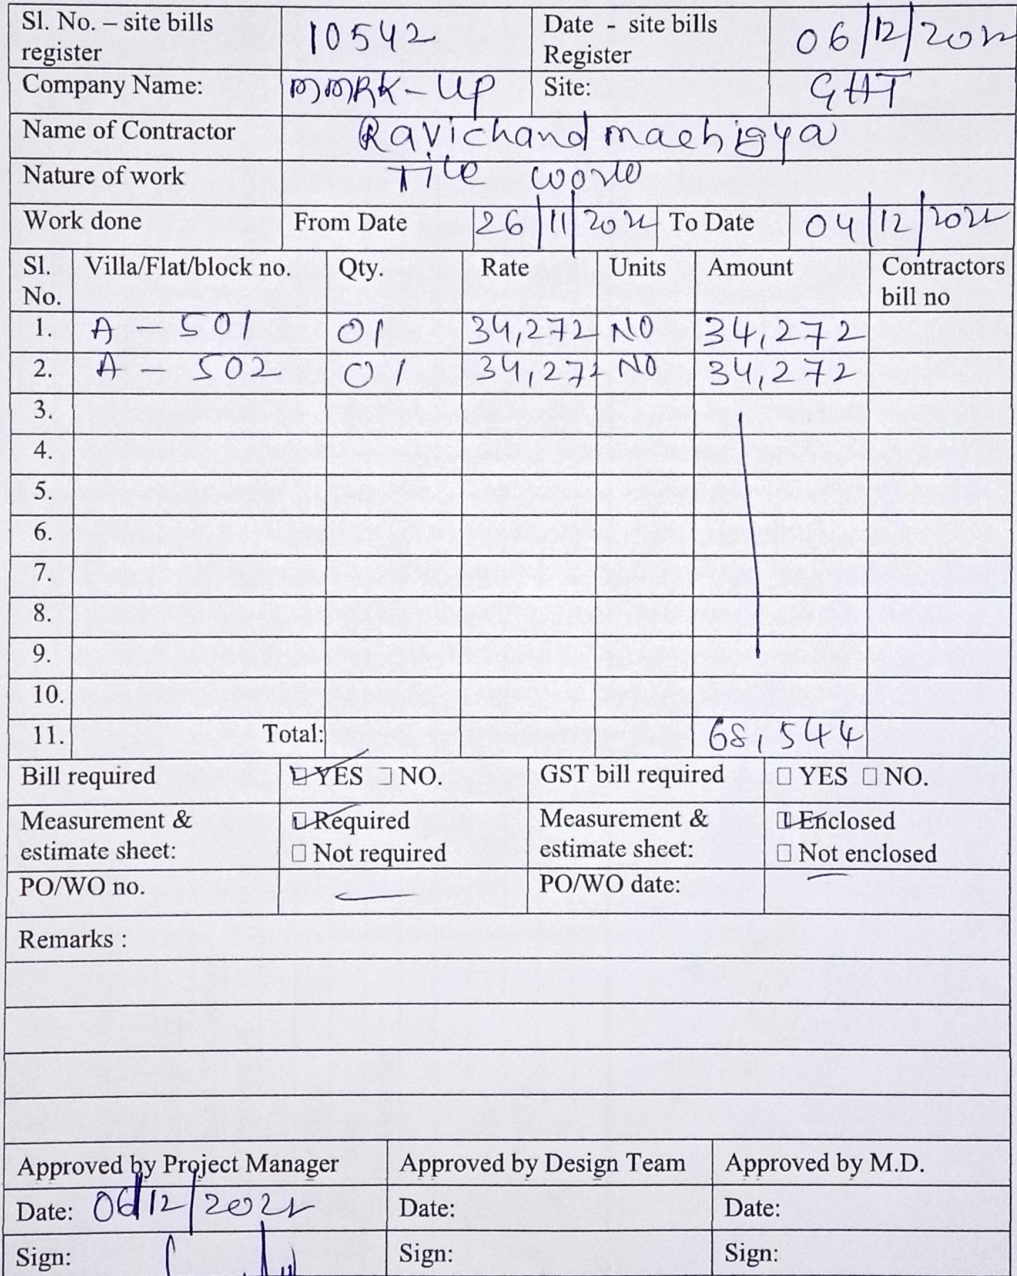 Sl. No. – site bills register 10542 Date - site bills Register 06/12/2022
Company Name: MMRK-UP Site: GHT
Name of Contractor Ravichand machigya
Nature of work Tile work
Work done From Date 26/11/2022 To Date 04/12/2022
Sl. No. Villa/Flat/block no. Qty. Rate Units Amount Contractors bill no
1. A - 501 01 34,272 NO 34,272
2. A - 502 01 34,272 NO 34,272
3.
4.
5.
6.
7.
8.
9.
10.
11. Total: 68,544
Bill required YES NO. GST bill required YES NO.
Measurement & estimate sheet: Required Not required Measurement & estimate sheet: Enclosed Not enclosed
PO/WO no. PO/WO date:
Remarks :
Approved by Project Manager Approved by Design Team Approved by M.D.
Date: 06/12/2022 Date: Date:
Sign: Sign: Sign: